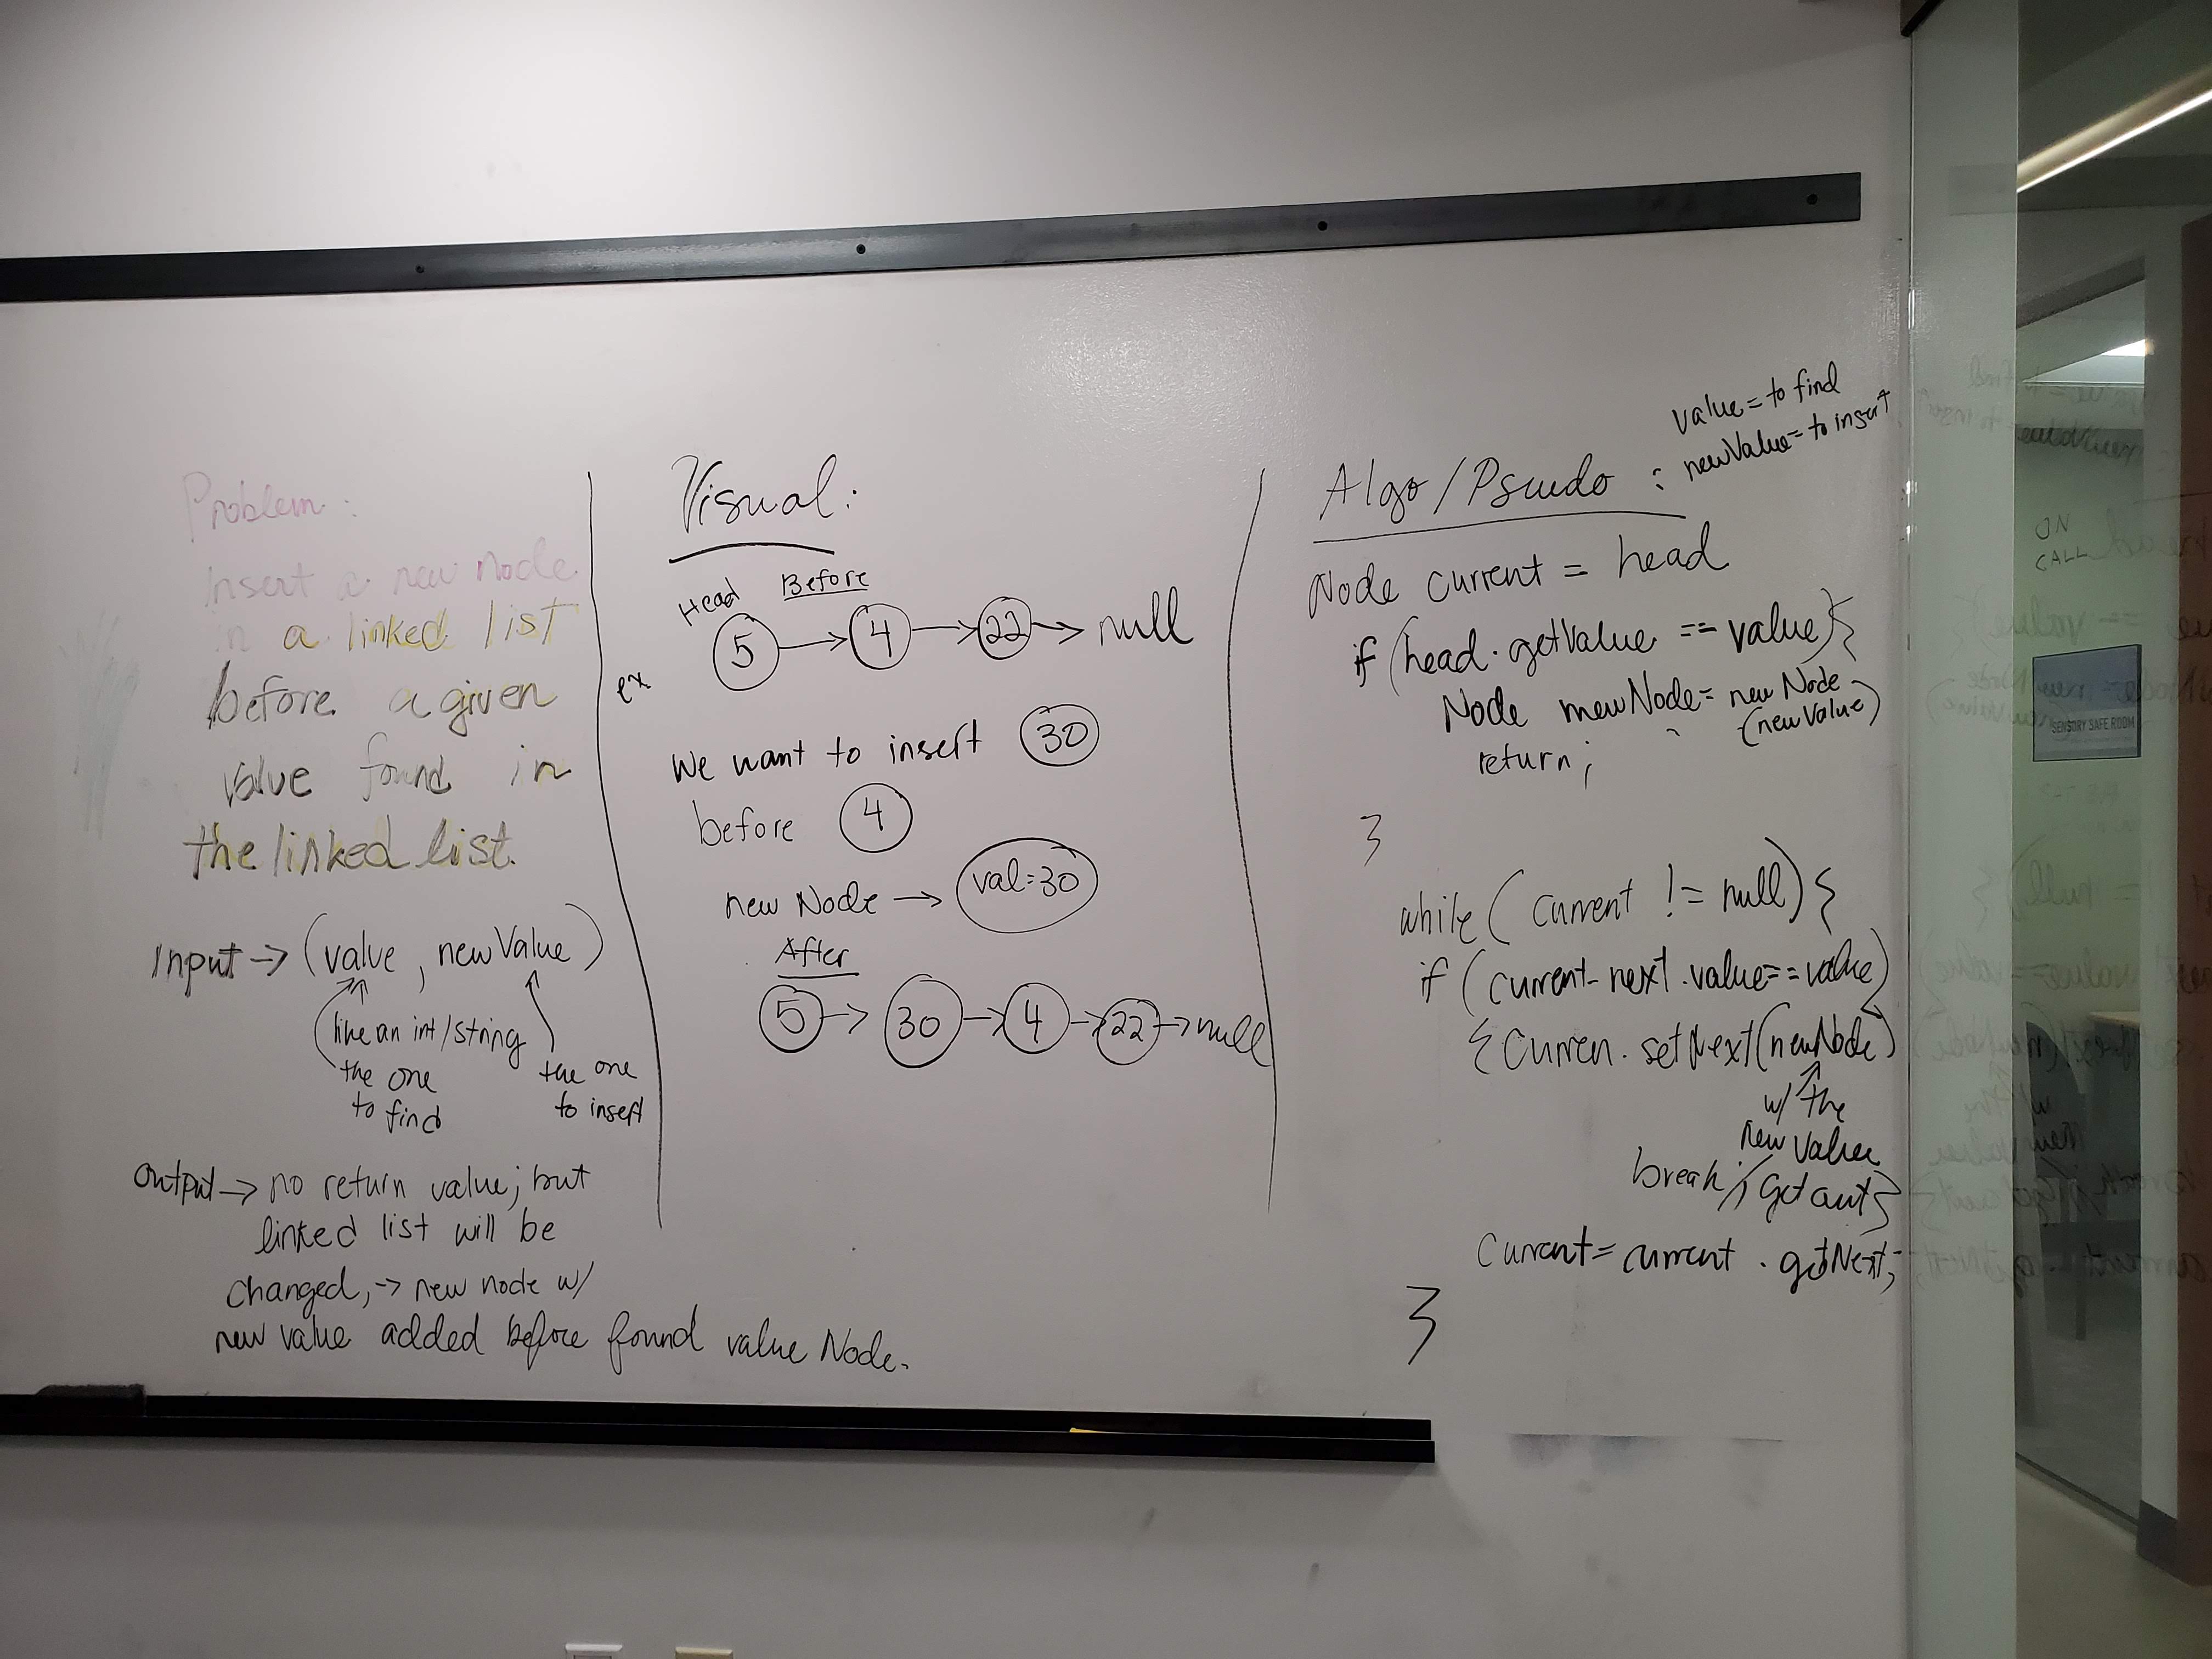 Problem:
Insert a new node
in a linked list
before a given
value found in
the linked list.
Input → (value, newValue)
like an int/string
the one
to find
the one
to insert
Output → no return value; but
linked list will be
changed, → new node w/
new value added before found value Node.
Visual:
Head Before
5 → 4 → 22 → null
ex
We want to insert 30
before 4
new Node → val=30
After
5 → 30 → 4 → 22 → null
value = to find
newValue = to insert
Algo/Psuedo :
Node current = head
if (head.getValue == value) {
Node newNode = new Node
(newValue)
return;
}
while (current != null) {
if (current.next.value == value)
{ Curren.setNext(newNode)
w/ the
new value
break; // get out }
Current = current.getNext;
}
ON
CALL
SENSORY SAFE ROOM